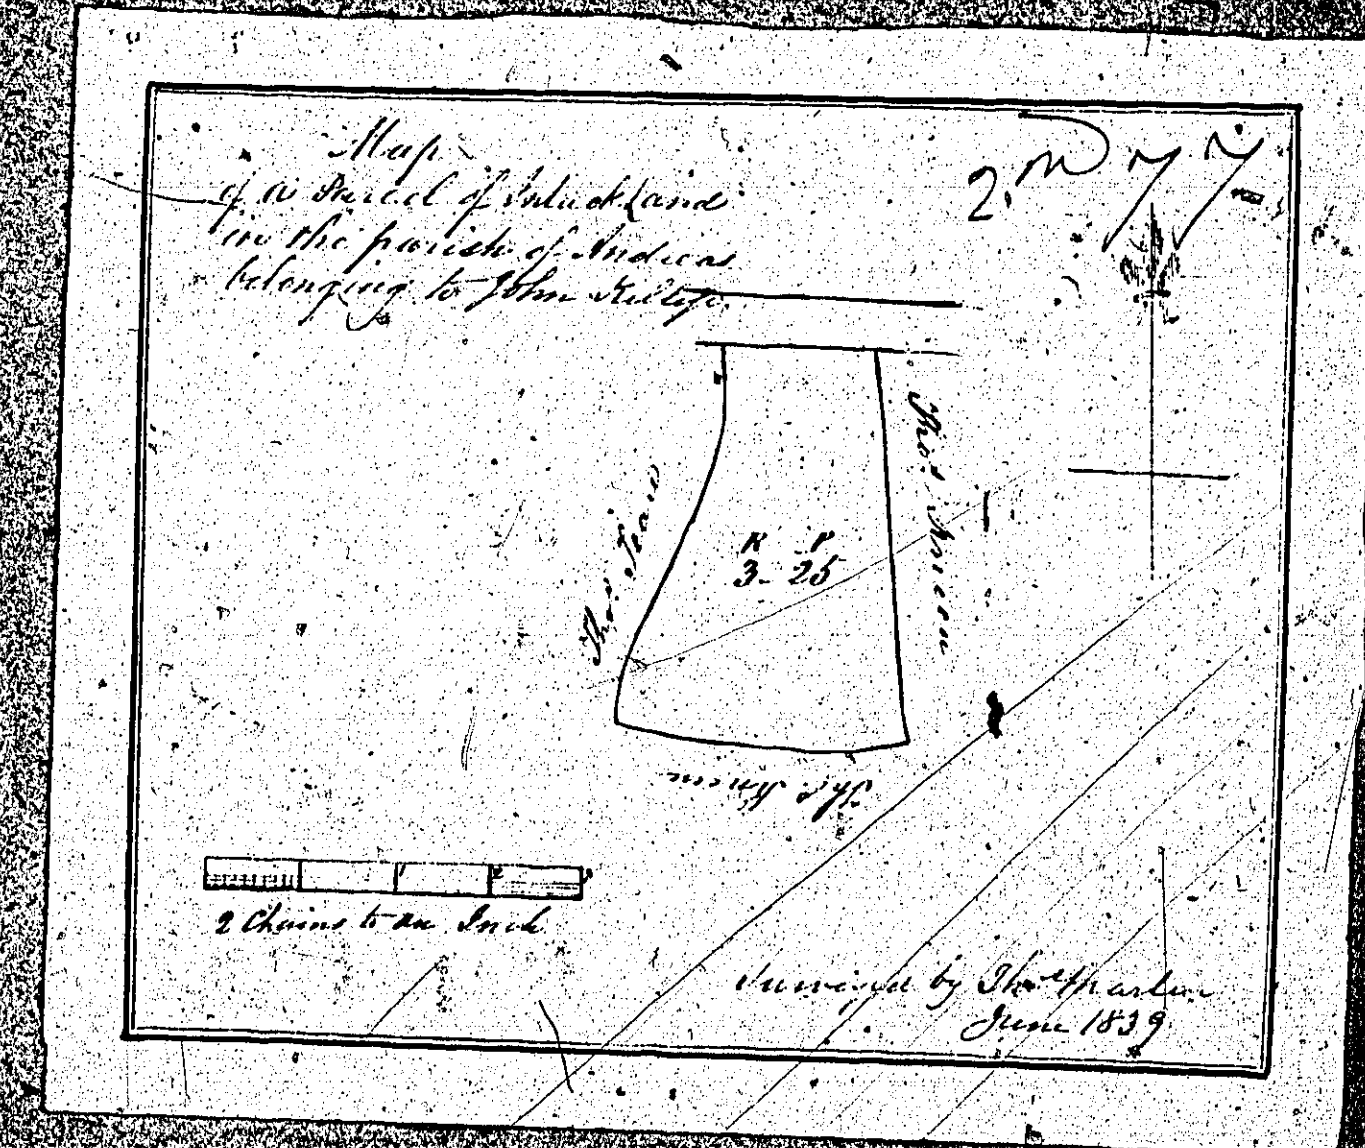 Map
of a Parcel of Intack Land
in the parish of Andreas
belonging to John
2. m 77
Thos. Kneen
Thos. Teare
R P
3 - 25
Thos. Kneen
1 2 3
2 Chains to an Inch
Surveyed by Thos.
June 1839